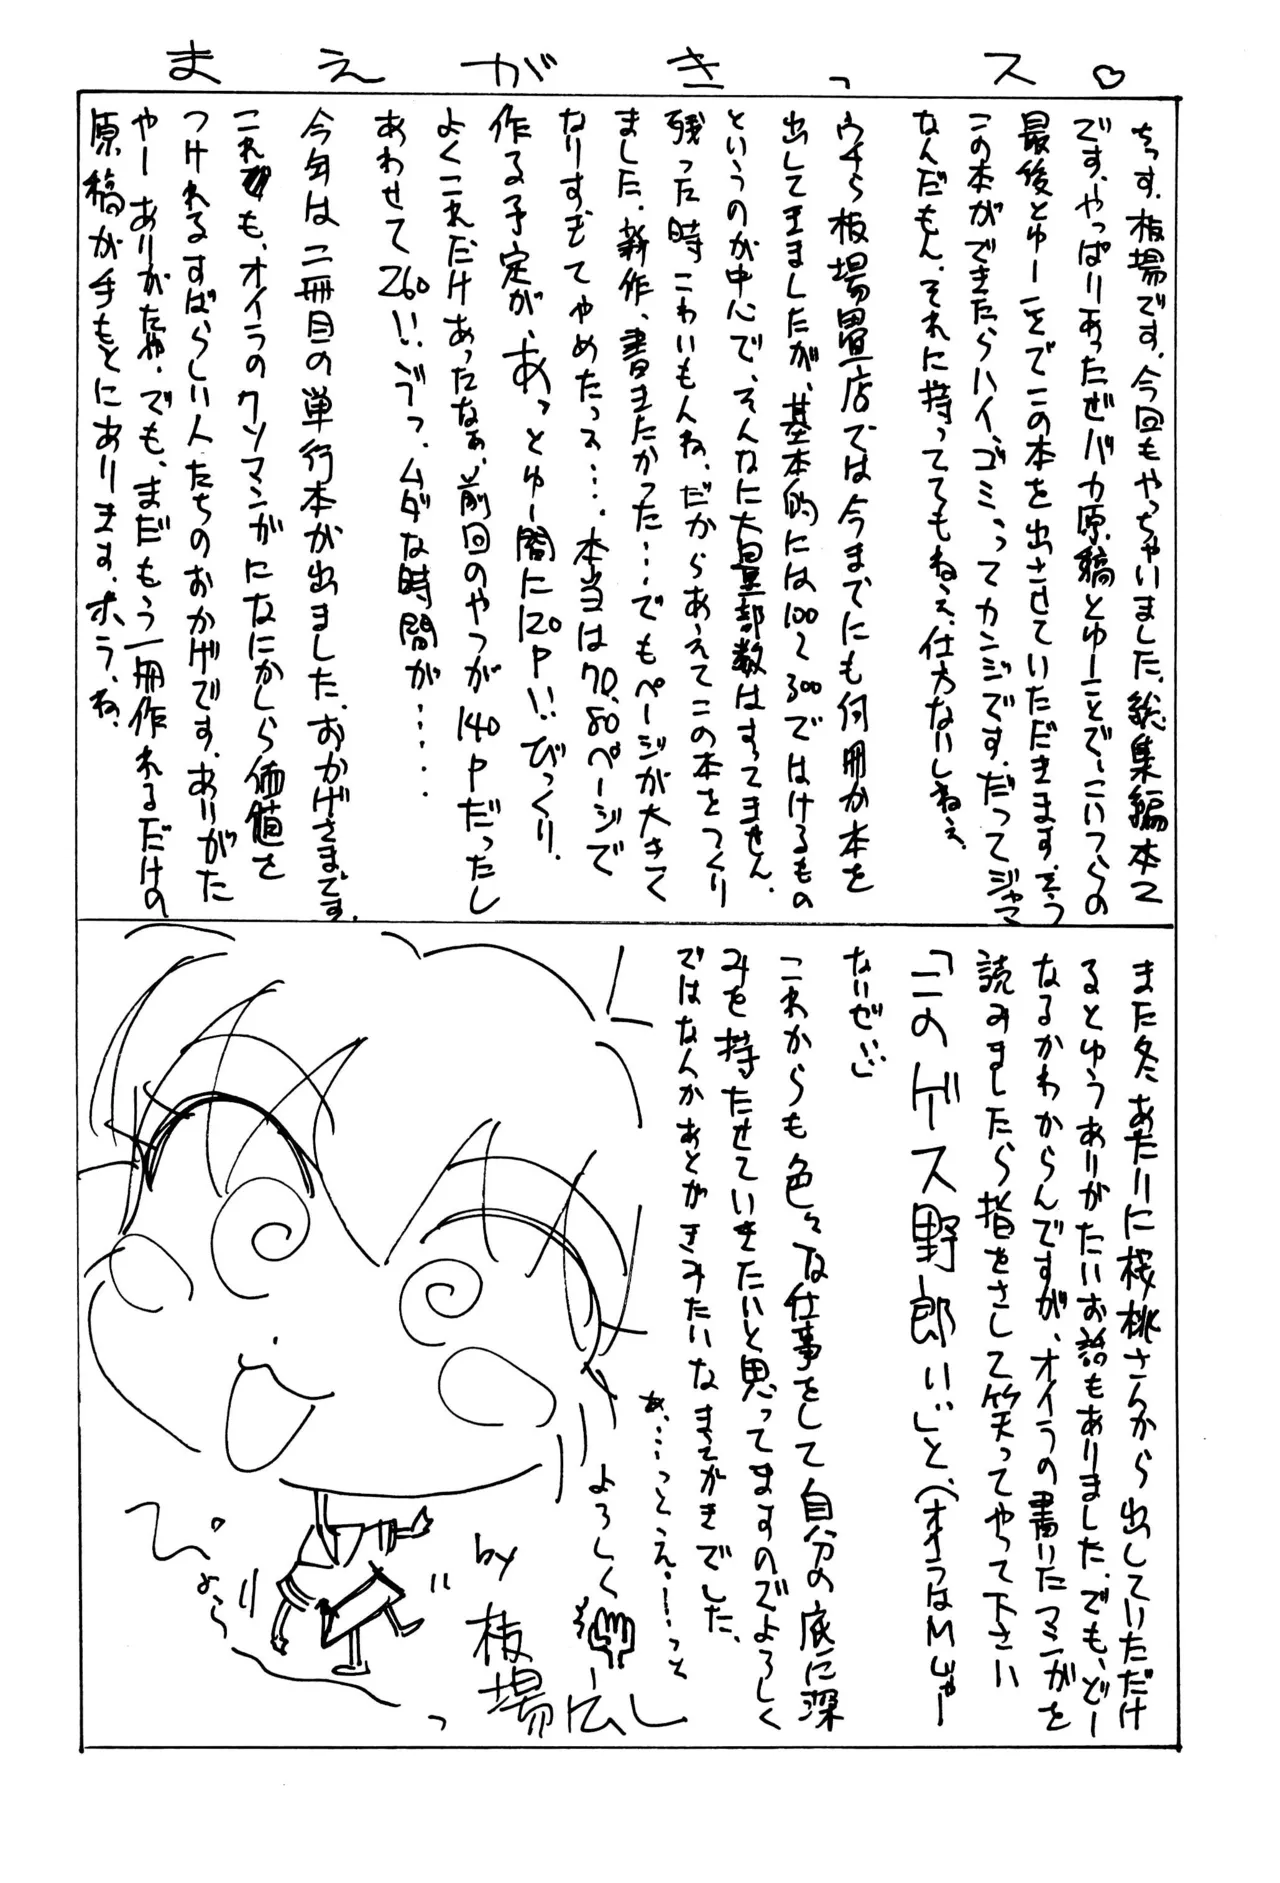 まえがきっス♡
ちっす。板場です。今回もやっちゃいました、総集編本2
です。やっぱりあったぜバカ原稿とゆーことで、こいつらの
最後とゆーことでこの本を出させていただきます。そう
この本ができたらハイ、ゴミ、ってカンジです。だってジャマ
なんだもん。それに持っててもねぇ、仕方ないしねぇ。
ウチら板場畳店では今までにも何冊か本を
出してきましたが、基本的には100~300ではけるもの
というのが中心で、そんなに大量部数はすってません。
残った時こわいもんね。だからあえてこの本をつくり
ました。新作、書きたかった…。でもページが大きく
なりすぎてやめたっス…。本当は70、80ページで
作る予定が、あっとゆー間に120P!!びっくり。
よくこれだけあったなぁ、前回のやつが140Pだったし
あわせて260!!ゲっ、ムダな時間が……
今年は二冊目の単行本が出ました。おかげさまです。
これも、オイラのクソマンガになにかしら価値を
つけれるすばらしい人たちのおかげです。ありがた
やー ありがたや。でも、まだもう一冊作れるだけの
原稿が手もとにあります。ホラ、ね。
また冬あたりに桜桃さんから出していただけ
るとゆうありがたいお話もありました。でも、どー
なるかわからんですが、オイラの書いたマンガを
読みましたら指をさして笑ってやって下さい
「このゲース野郎!!」と、(オイラはMじゃー
ないぜ!!)
これからも色々な仕事をして自分の底に深
みを持たせていきたいと思ってますのでよろしく
ではなんかあとがきみたいなまえがきでした。
あ……っとえーっと
よろしく
by 板場広し
ぴょろっ